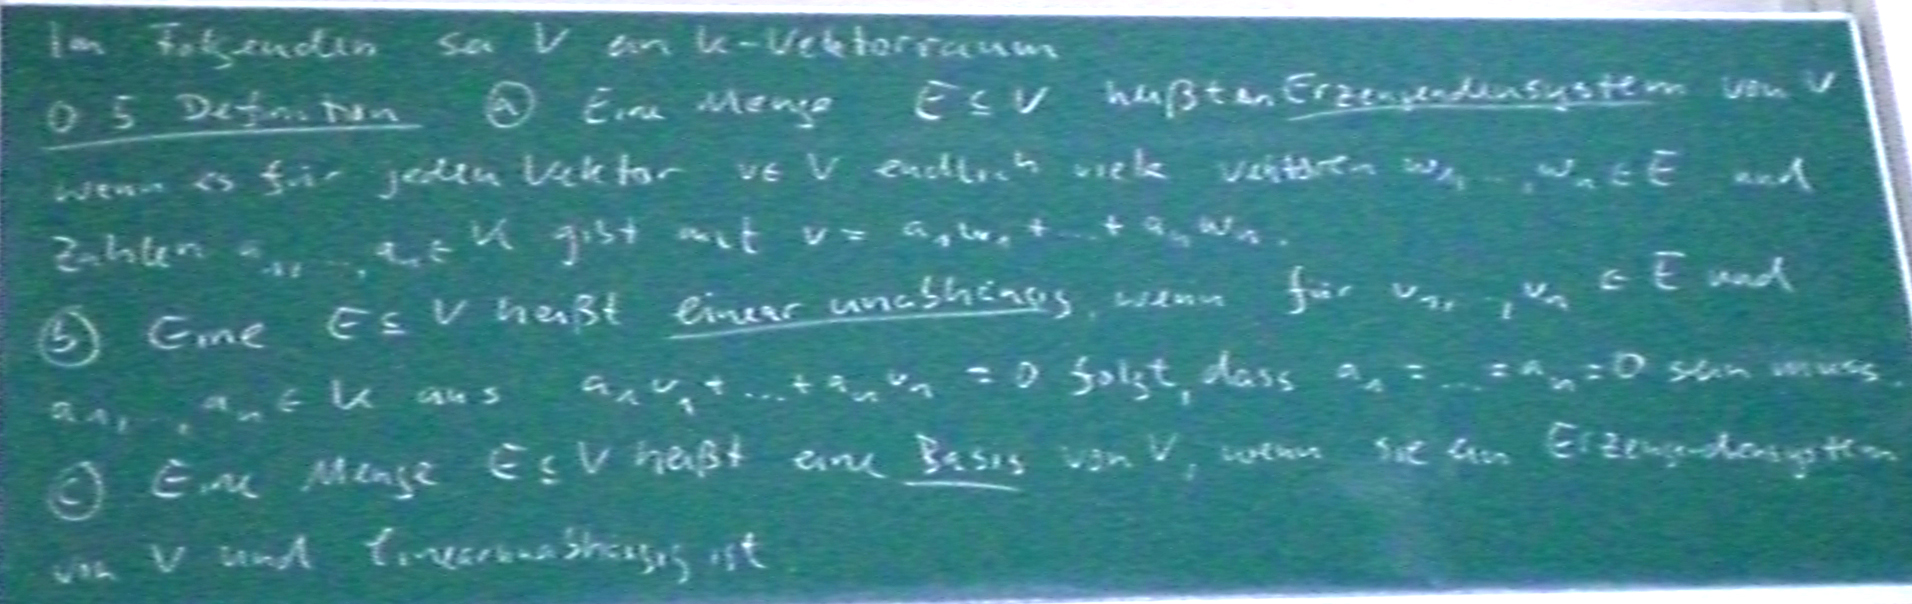 Im Folgenden sei V ein k-Vektorraum
0.5 Definition (a) Eine Menge E ⊆ V heißt ein Erzeugendensystem von V
wenn es für jeden Vektor v ∈ V endlich viele Vektoren w₁, ..., wₙ ∈ E und
Zahlen a₁, ..., aₙ ∈ K gibt mit v = a₁w₁ + ... + aₙwₙ.
(b) Eine E ⊆ V heißt linear unabhängig, wenn für v₁, ..., vₙ ∈ E und
a₁, ..., aₙ ∈ K aus a₁v₁ + ... + aₙvₙ = 0 folgt, dass a₁ = ... = aₙ = 0 sein muss.
(c) Eine Menge E ⊆ V heißt eine Basis von V, wenn sie ein Erzeugendensystem
von V und linear unabhängig ist